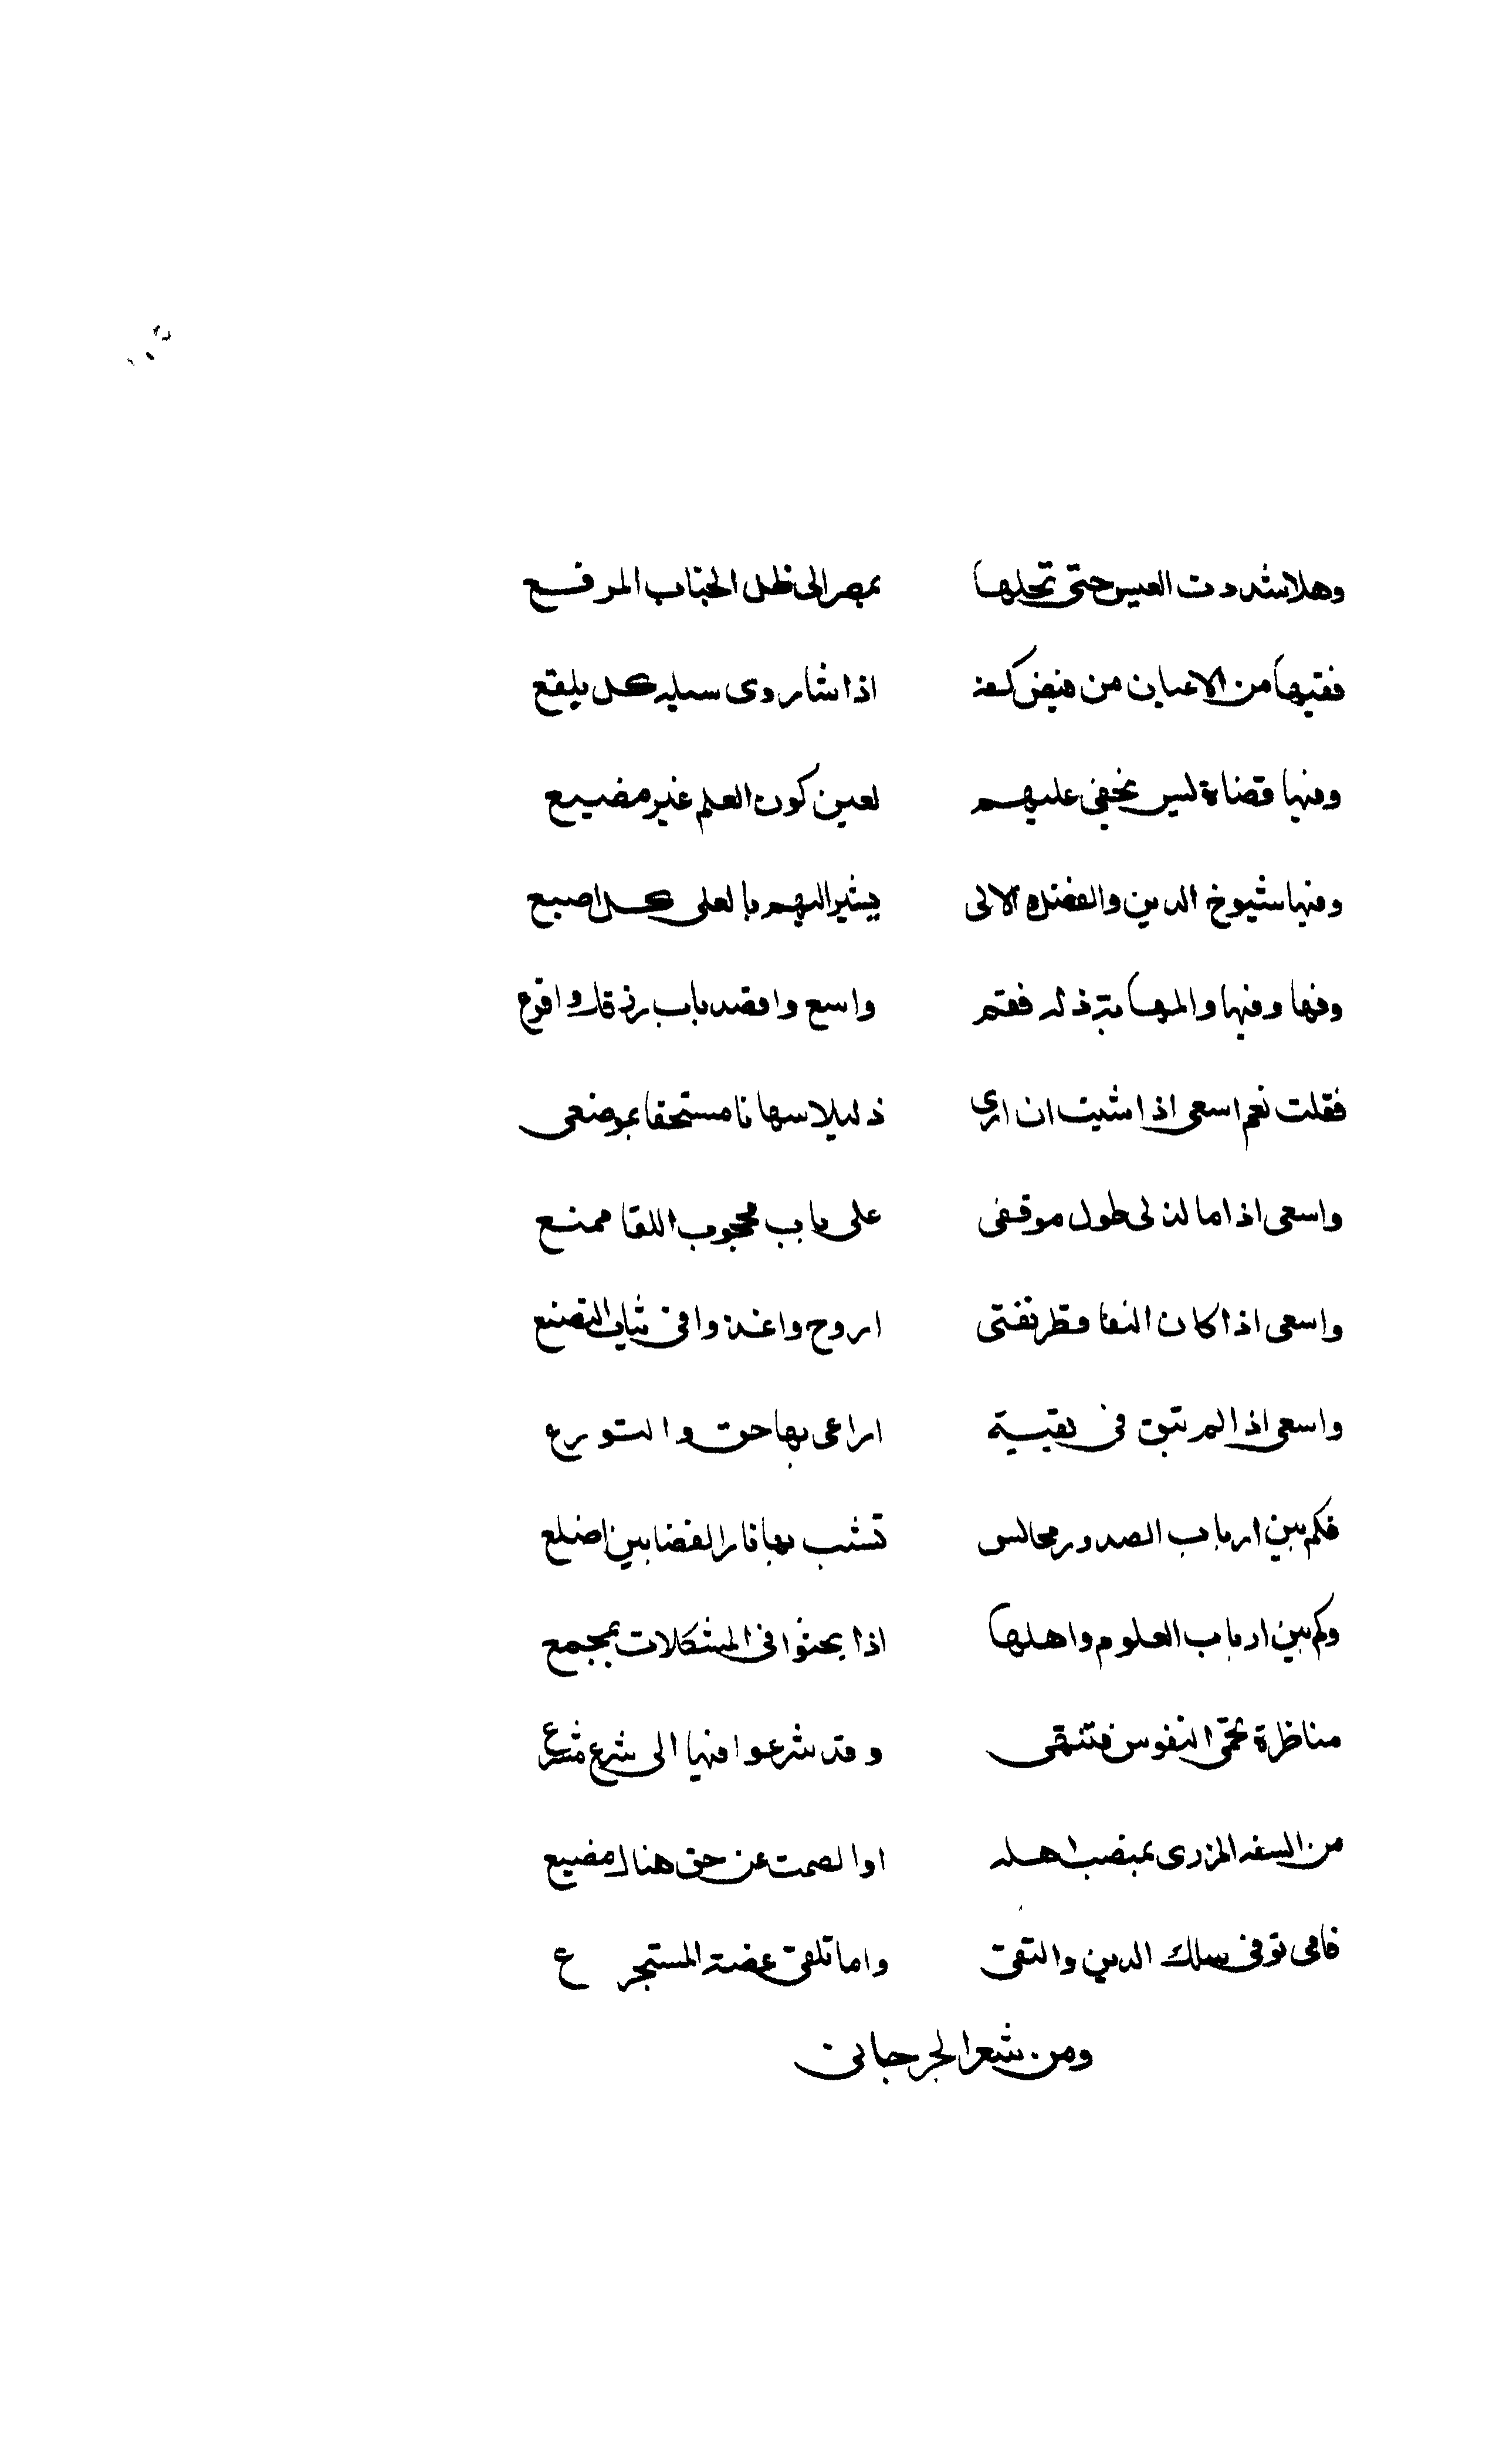 وهلا شددت العيس حتى تحلها بمصر الى ظل الجناب المرفع
ففيها من الاعيان من فيض كفه اذا شا روى سيله كل بلقع
وفيها قضاة ليس يخفى عليهم لعين كون العلم غير مضيع
وفيها شيوخ الدين والفضل الالى يشير اليهم بالعلى كل اصبع
وفيها وفيها والمهابة ذله فقم واسع واقصد باب رزقك واقرع
فقلت نعم اسعى اذا شيت ان ارى ذليلا مهانا مستحقا بموضعى
واسعى اذا ما لذ لى طول موقفى على باب محجوب اللقا ممنع
واسعى اذا كان النفاق طريقتى اروح واغدوا فى ثياب التصنع
واسعى اذا لم تبق فى بقية اراعى بها حق والتورع
فكم بين ارباب الصدور مجالس تشب بها نار الغضا بين اضلع
وكم بين ارباب العلوم واهلها اذا بحثوا فى المشكلات بمجمع
مناظرة تحمى النفوس فتنتهى وقد شرعوا فيها الى شر مشرع
من السفه المزرى بمنصب اهله او الصمت عن حق هناك مضيع
فامى توفى سلك الدين والتقى واما تلقى غصة المستجرع
ومن شعر الجرجانى